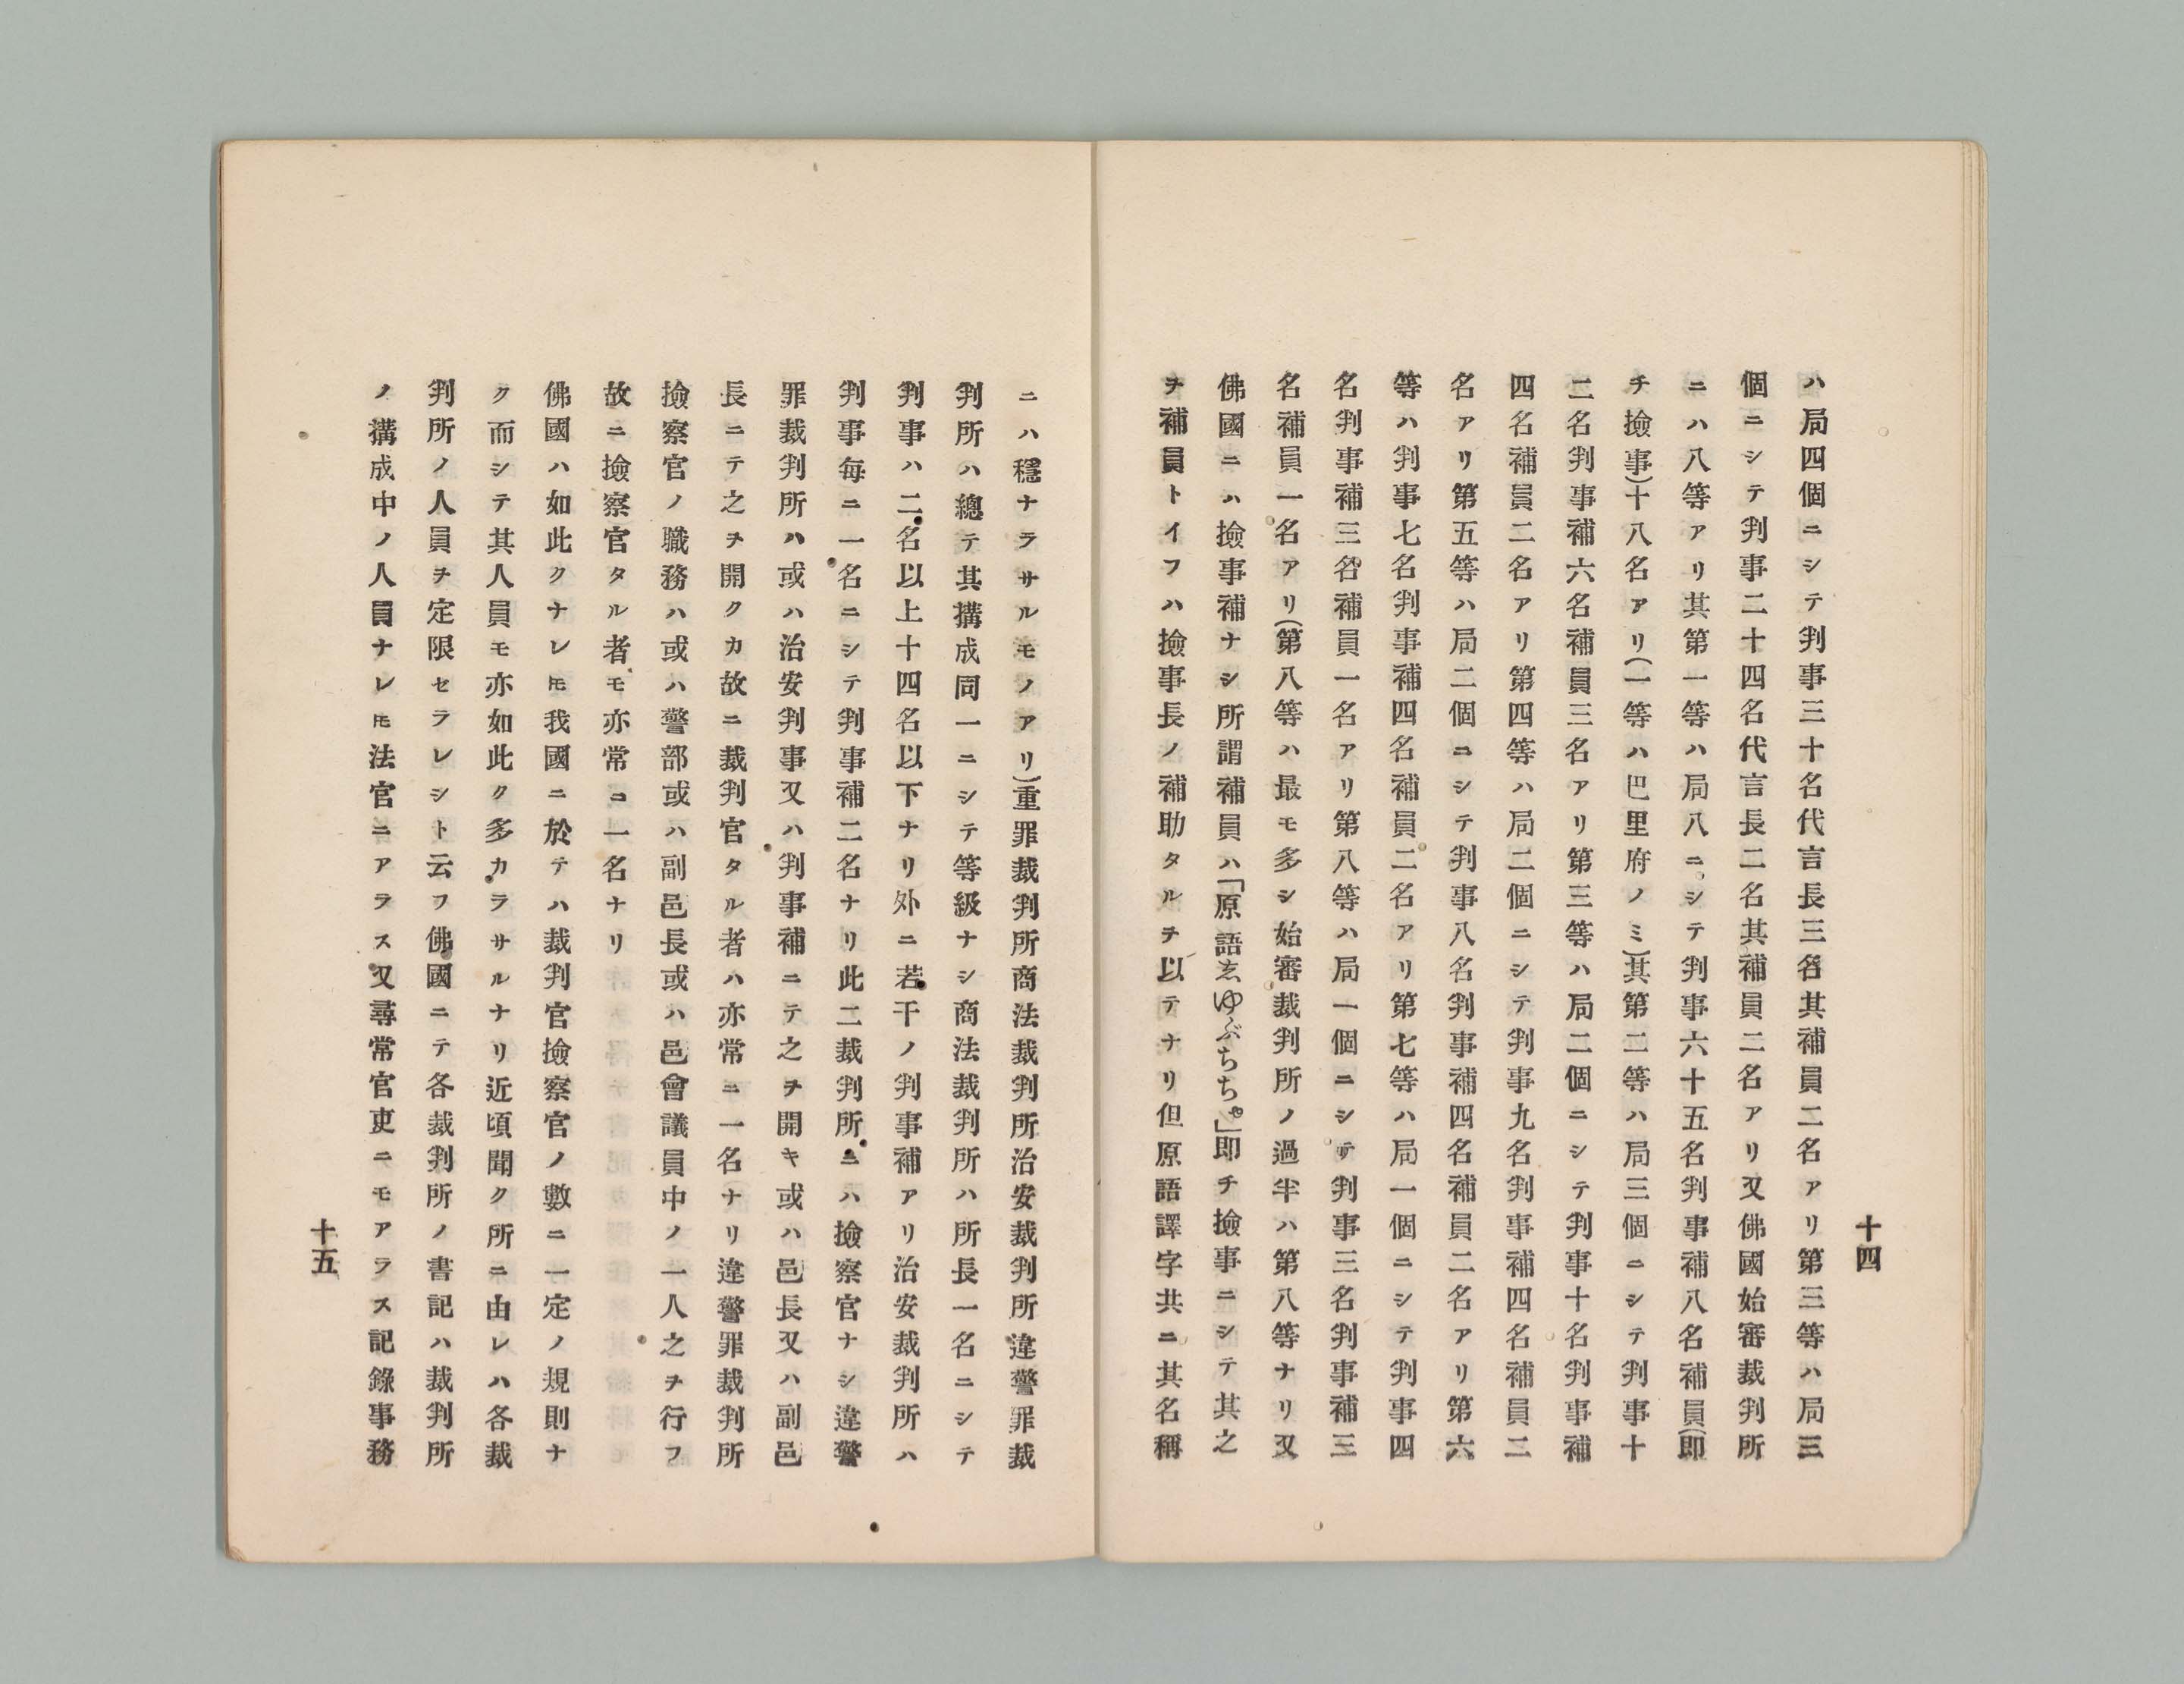 十四
ハ局四個ニシテ判事三十名代言長三名其補員二名アリ第三等ハ局三
個ニシテ判事二十四名代言長二名其補員二名アリ又佛國始審裁判所
ニハ八等アリ其第一等ハ局八ニシテ判事六十五名判事補八名補員(即
チ撿事)十八名アリ(一等ハ巴里府ノミ)其第二等ハ局三個ニシテ判事十
二名判事補六名補員三名アリ第三等ハ局二個ニシテ判事十名判事補
四名補員二名アリ第四等ハ局二個ニシテ判事九名判事補四名補員二
名アリ第五等ハ局二個ニシテ判事八名判事補四名補員二名アリ第六
等ハ判事七名判事補四名補員二名アリ第七等ハ局一個ニシテ判事四
名判事補三名補員一名アリ第八等ハ局一個ニシテ判事三名判事補三
名補員一名アリ(第八等ハ最モ多シ始審裁判所ノ過半ハ第八等ナリ又
佛國ニハ撿事補ナシ所謂補員ハ「原語ゑゆぶちち。」即チ撿事ニシテ其之
ヲ補員トイフハ撿事長ノ補助タルヲ以テナリ但原語譯字共ニ其名稱
ニハ穩ナラサルモノアリ)重罪裁判所商法裁判所治安裁判所違警罪裁
判所ハ總テ其搆成同一ニシテ等級ナシ商法裁判所ハ所長一名ニシテ
判事ハ二名以上十四名以下ナリ外ニ若干ノ判事補アリ治安裁判所ハ
判事每ニ一名ニシテ判事補二名ナリ此二裁判所ニハ撿察官ナシ違警
罪裁判所ハ或ハ治安判事又ハ判事補ニテ之ヲ開キ或ハ邑長又ハ副邑
長ニテ之ヲ開クカ故ニ裁判官タル者ハ亦常ニ一名ナリ違警罪裁判所
撿察官ノ職務ハ或ハ警部或ハ副邑長或ハ邑會議員中ノ一人之ヲ行フ
故ニ撿察官タル者モ亦常ニ一名ナリ
佛國ハ如此クナレ𪜈我國ニ於テハ裁判官撿察官ノ數ニ一定ノ規則ナ
ク而シテ其人員モ亦如此ク多カラサルナリ近頃聞ク所ニ由レハ各裁
判所ノ人員ヲ定限セラレシト云フ佛國ニテ各裁判所ノ書記ハ裁判所
ノ搆成中ノ人員ナレ𪜈法官ニアラス又尋常官吏ニモアラス記錄事務
十五